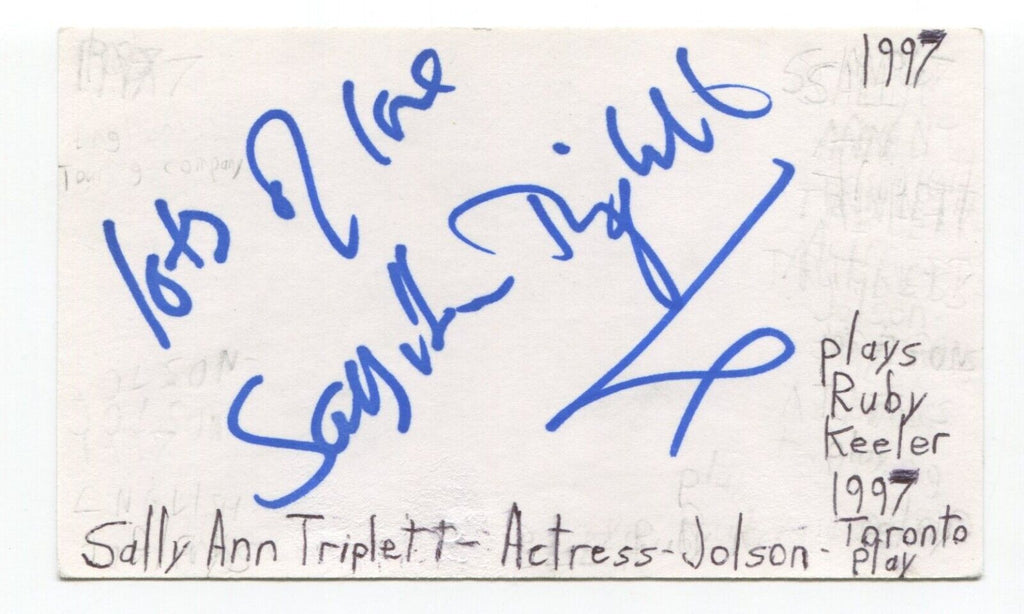 1997
lots of love
Sally Ann Triplett
plays
Ruby
Keeler
1997
Toronto
Play
Sally Ann Triplett - Actress - Jolson -